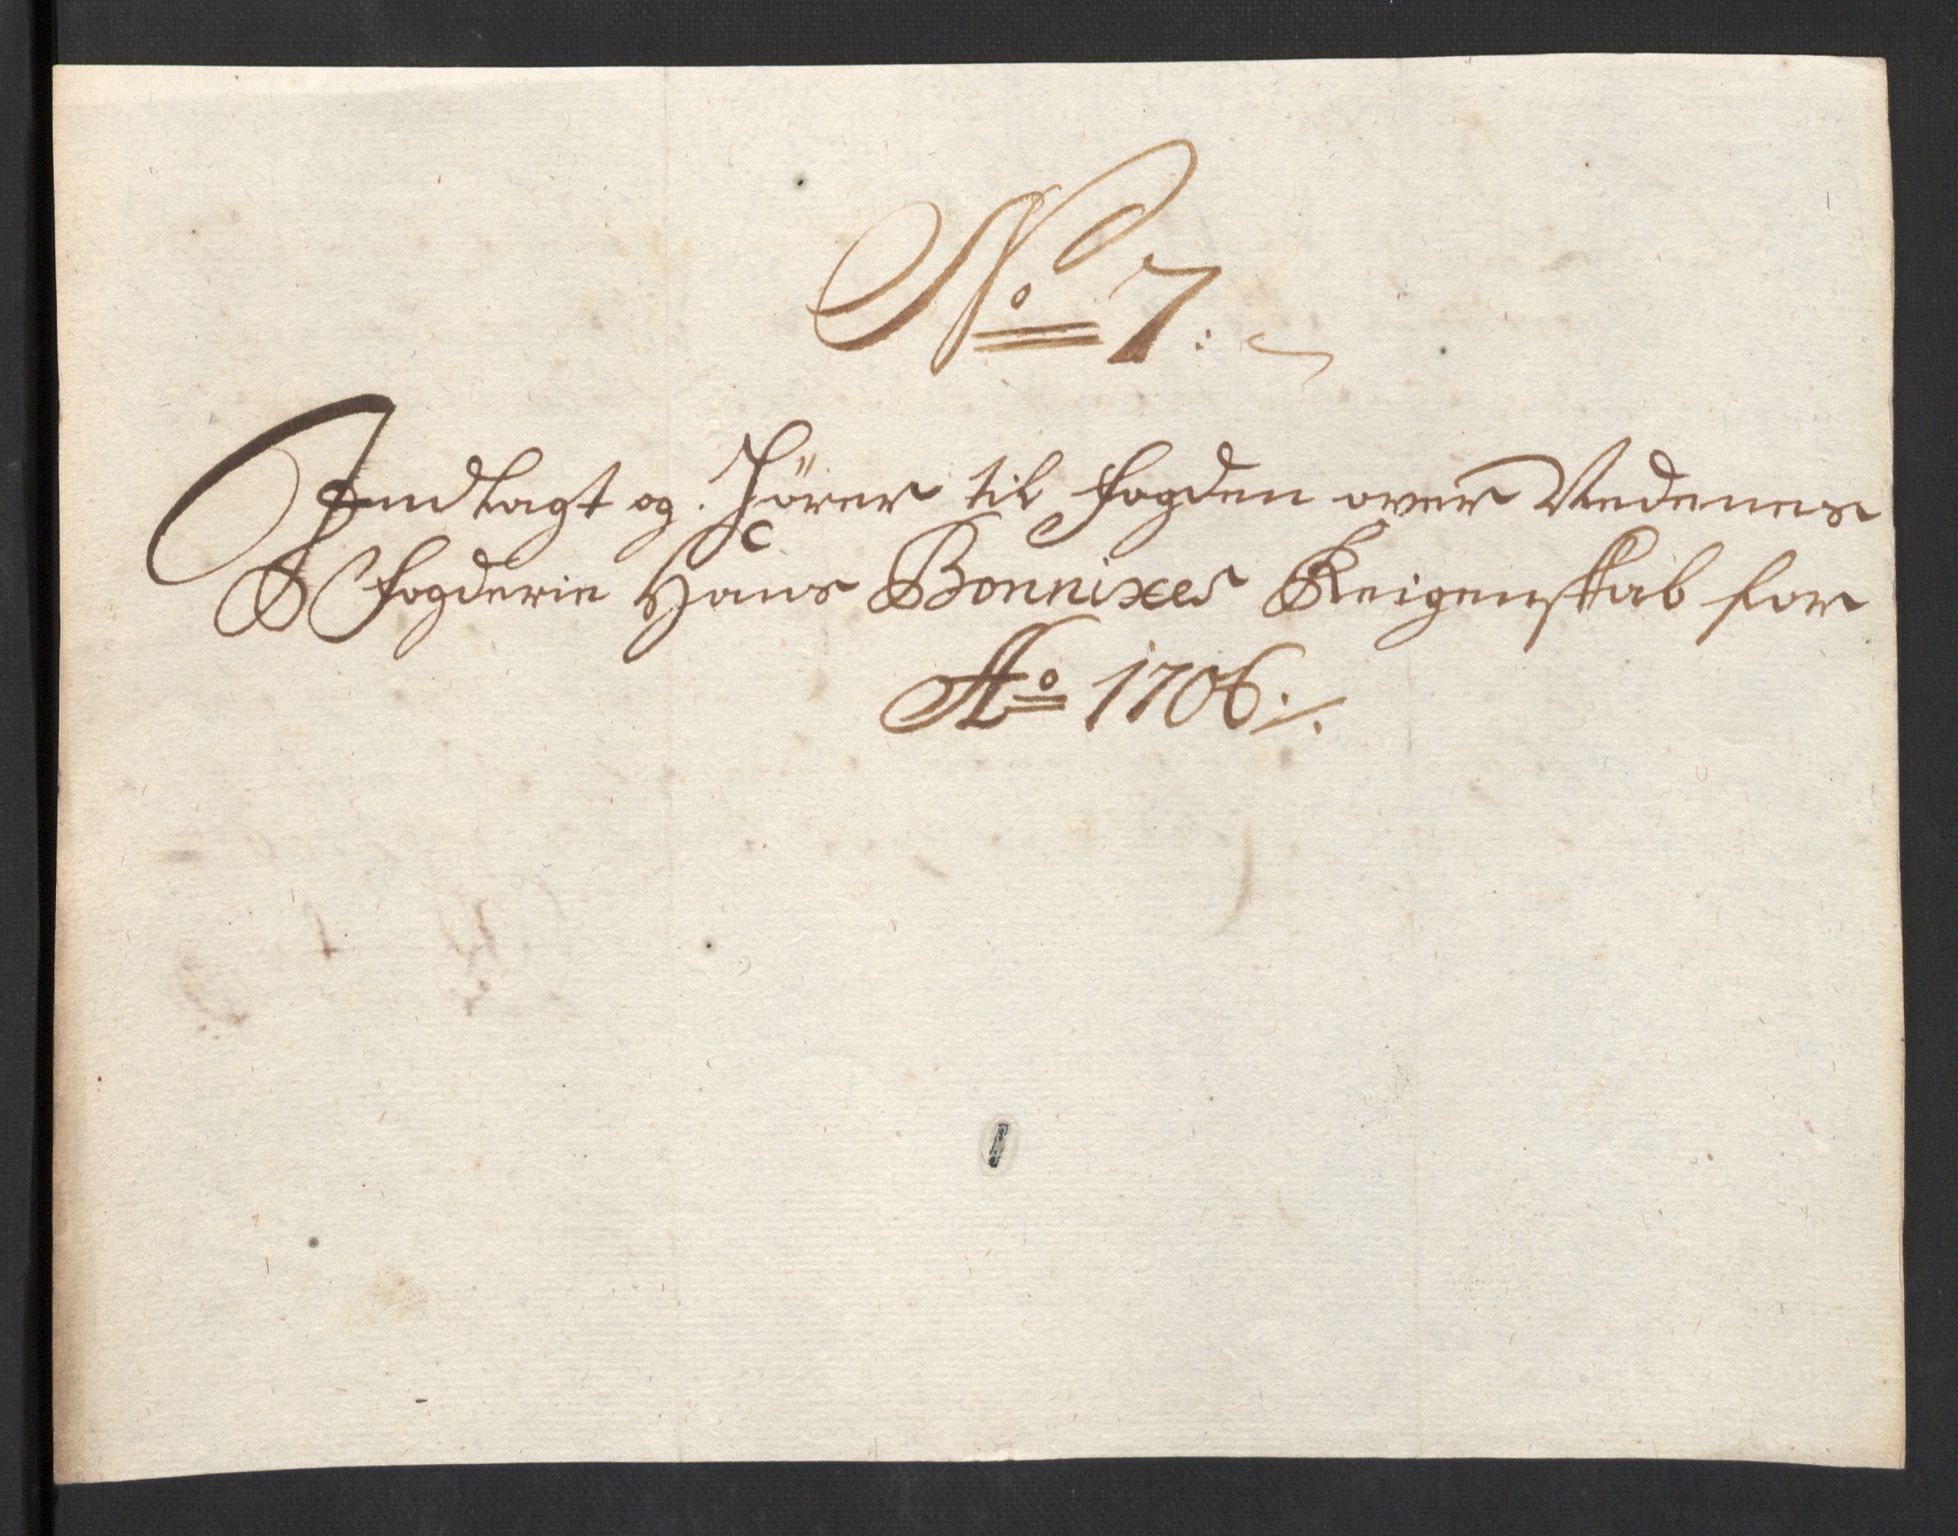 No 7:
Indlagt og Hörer til Fogden over Nedenes
Fogderie Hans Bonnixes Reigenskab for
Ao 1706 ./.